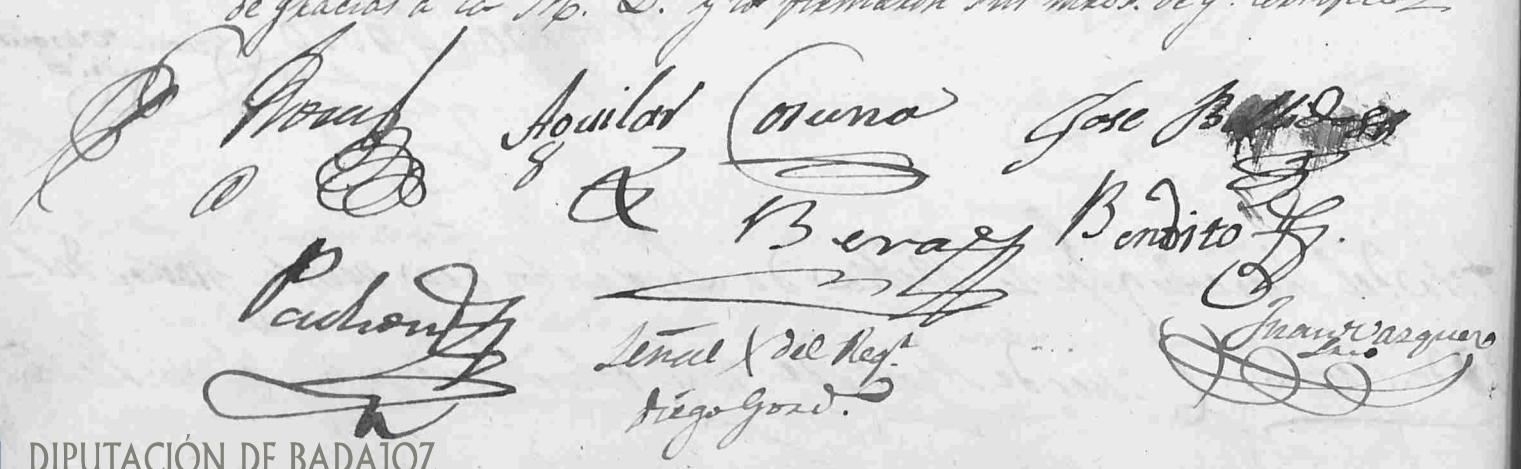 de gracias a la M. D. y lo firmaron sus mrds. de q.e certifico
Aguilar Coruna Jose
Beras Bendito
Pachon
Señal X del Reg.r
Diego Gord.
Juan Vazquez
Sro
DIPUTACIÓN DE BADAJOZ